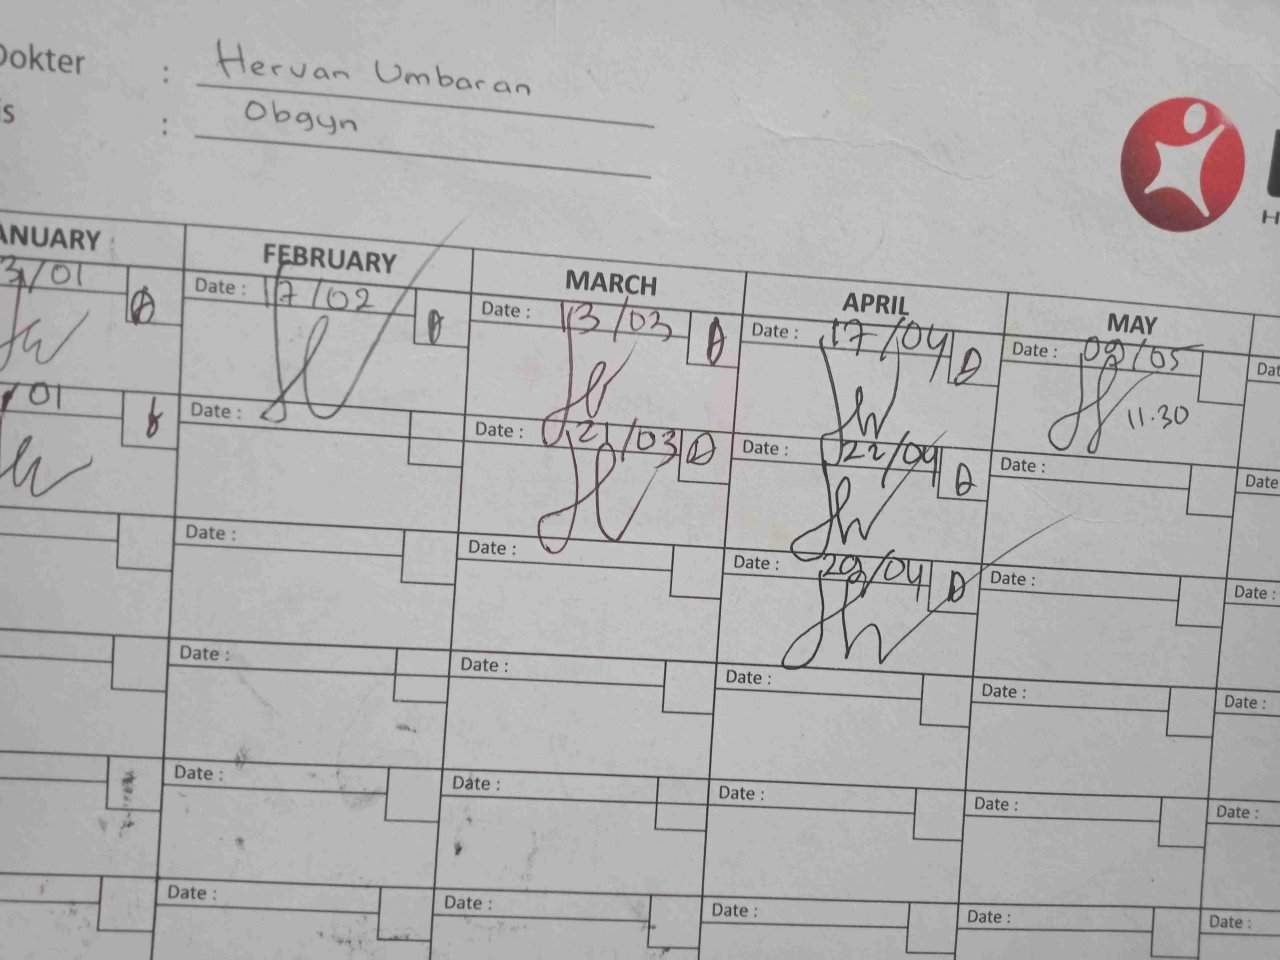 Dokter : Hervan Umbaran
is : Obgyn
ANUARY FEBRUARY MARCH APRIL MAY
3/01 Date : 17/02 Date : 13/03 Date : 17/04 Date : 09/05 Dat
11.30
/01 Date : Date : 21/03 Date : 22/04 Date : Date
Date : Date : Date : 29/04 Date : Date :
Date : Date : Date : Date : Date :
Date : Date : Date : Date : Date :
Date : Date : Date : Date : Date :